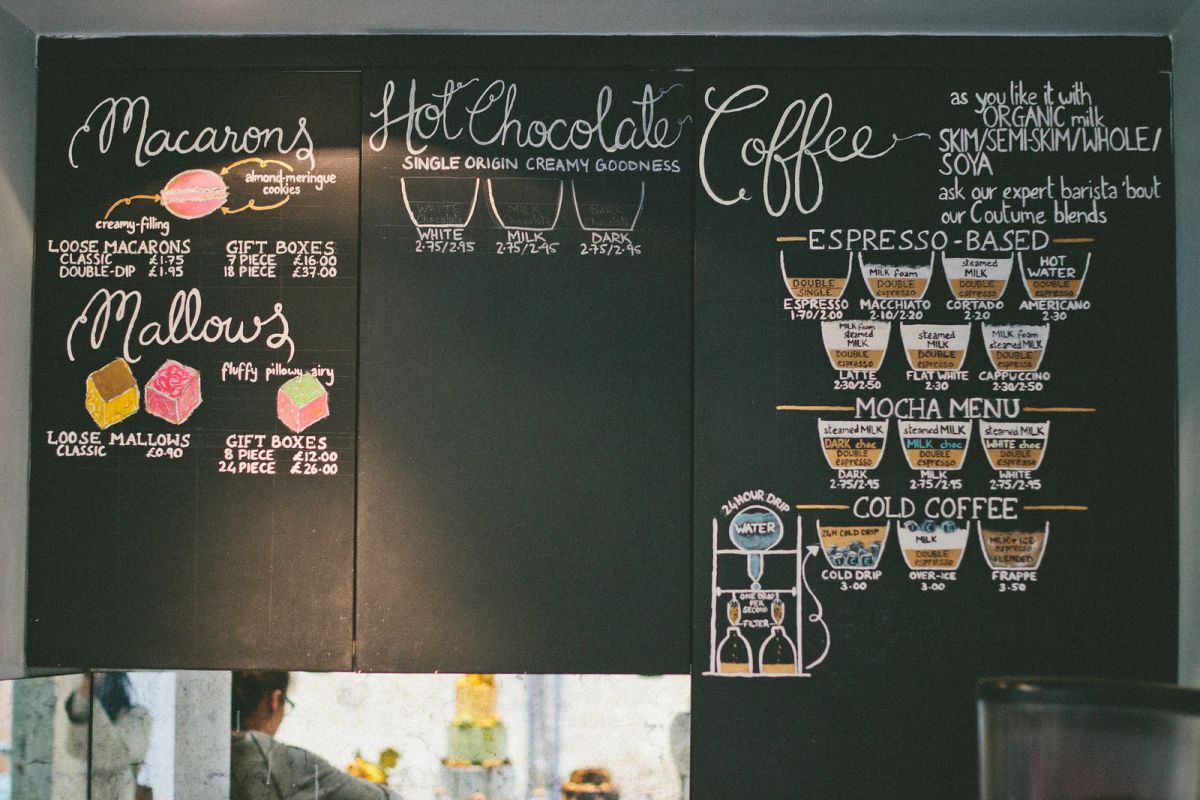 Macarons
almond-meringue
cookies
creamy-filling
LOOSE MACARONS
CLASSIC £1.75
DOUBLE-DIP £1.95
GIFT BOXES
7 PIECE £16.00
18 PIECE £37.00
Mallows
fluffy pillowy airy
LOOSE MALLOWS
CLASSIC £0.90
GIFT BOXES
8 PIECE £12.00
24 PIECE £26.00
Hot Chocolate
SINGLE ORIGIN CREAMY GOODNESS
WHITE Chocolate
MILK Chocolate
DARK Chocolate
WHITE MILK DARK
2.75/2.95 2.75/2.95 2.75/2.95
Coffee
as you like it with
ORGANIC milk
SKIM/SEMI-SKIM/WHOLE/
SOYA
ask our expert barista 'bout
our Coutume blends
ESPRESSO-BASED
DOUBLE
SINGLE
ESPRESSO
1.70/2.00
MILK foam
DOUBLE
espresso
MACCHIATO
2.10/2.20
steamed
MILK
DOUBLE
espresso
CORTADO
2.20
HOT
WATER
DOUBLE
espresso
AMERICANO
2.30
MILK foam
steamed
MILK
DOUBLE
espresso
LATTE
2.30/2.50
steamed
MILK
DOUBLE
espresso
FLAT WHITE
2.30
MILK foam
steamed MILK
DOUBLE
espresso
CAPPUCCINO
2.30/2.50
MOCHA MENU
steamed MILK
DARK choc
DOUBLE
espresso
DARK
2.75/2.95
steamed MILK
MILK choc
DOUBLE
espresso
MILK
2.75/2.95
steamed MILK
WHITE choc
DOUBLE
espresso
WHITE
2.75/2.95
COLD COFFEE
24H COLD DRIP
ICE
COLD DRIP
3.00
ICE
MILK
DOUBLE
espresso
OVER-ICE
3.00
MILK + ICE
espresso
BLENDED
FRAPPE
3.50
24 HOUR DRIP
WATER
ONE DROP
PER
SECOND
FILTER